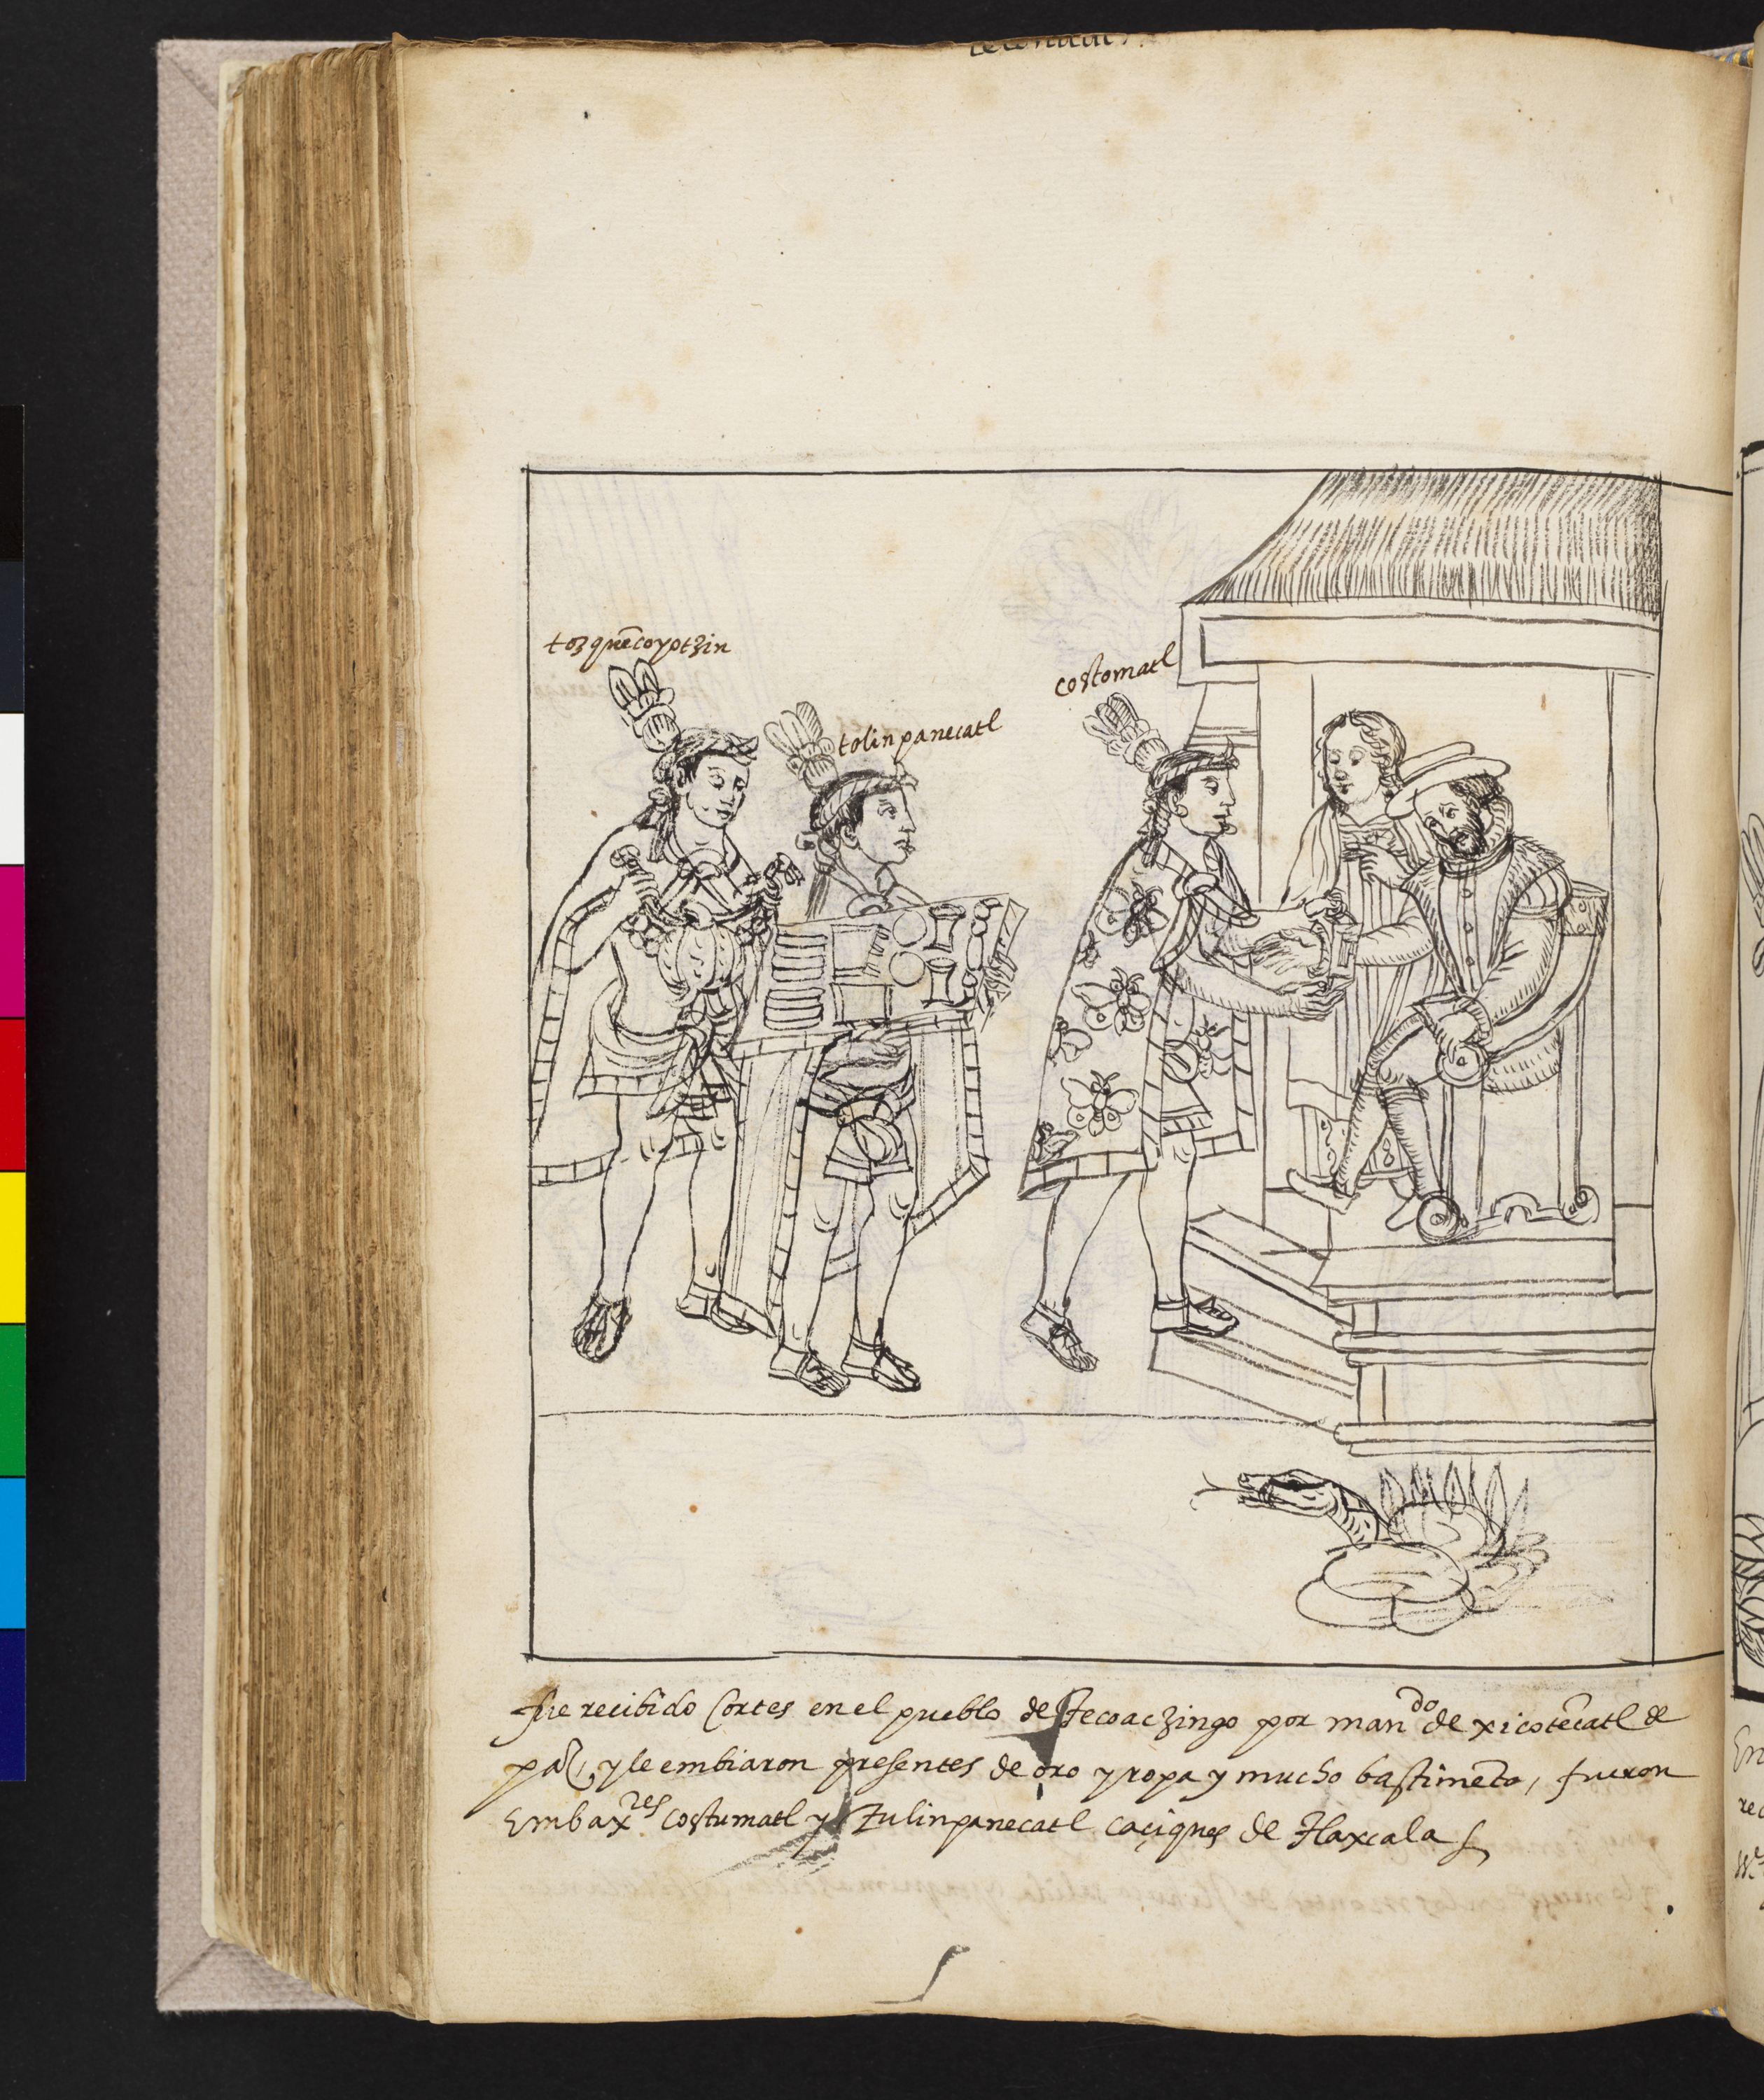 tozquēcoyotzin
tolinpanecatl
costomatl
fue recibido Cortes en el pueblo de Tecoaczingo por man.do de xicotēcatl el
y le embiaron presentes de oro y ropa y mucho bastimēto, fueron
Embax.res Costumatl y Tulinpanecatl caçiques de Tlaxcala